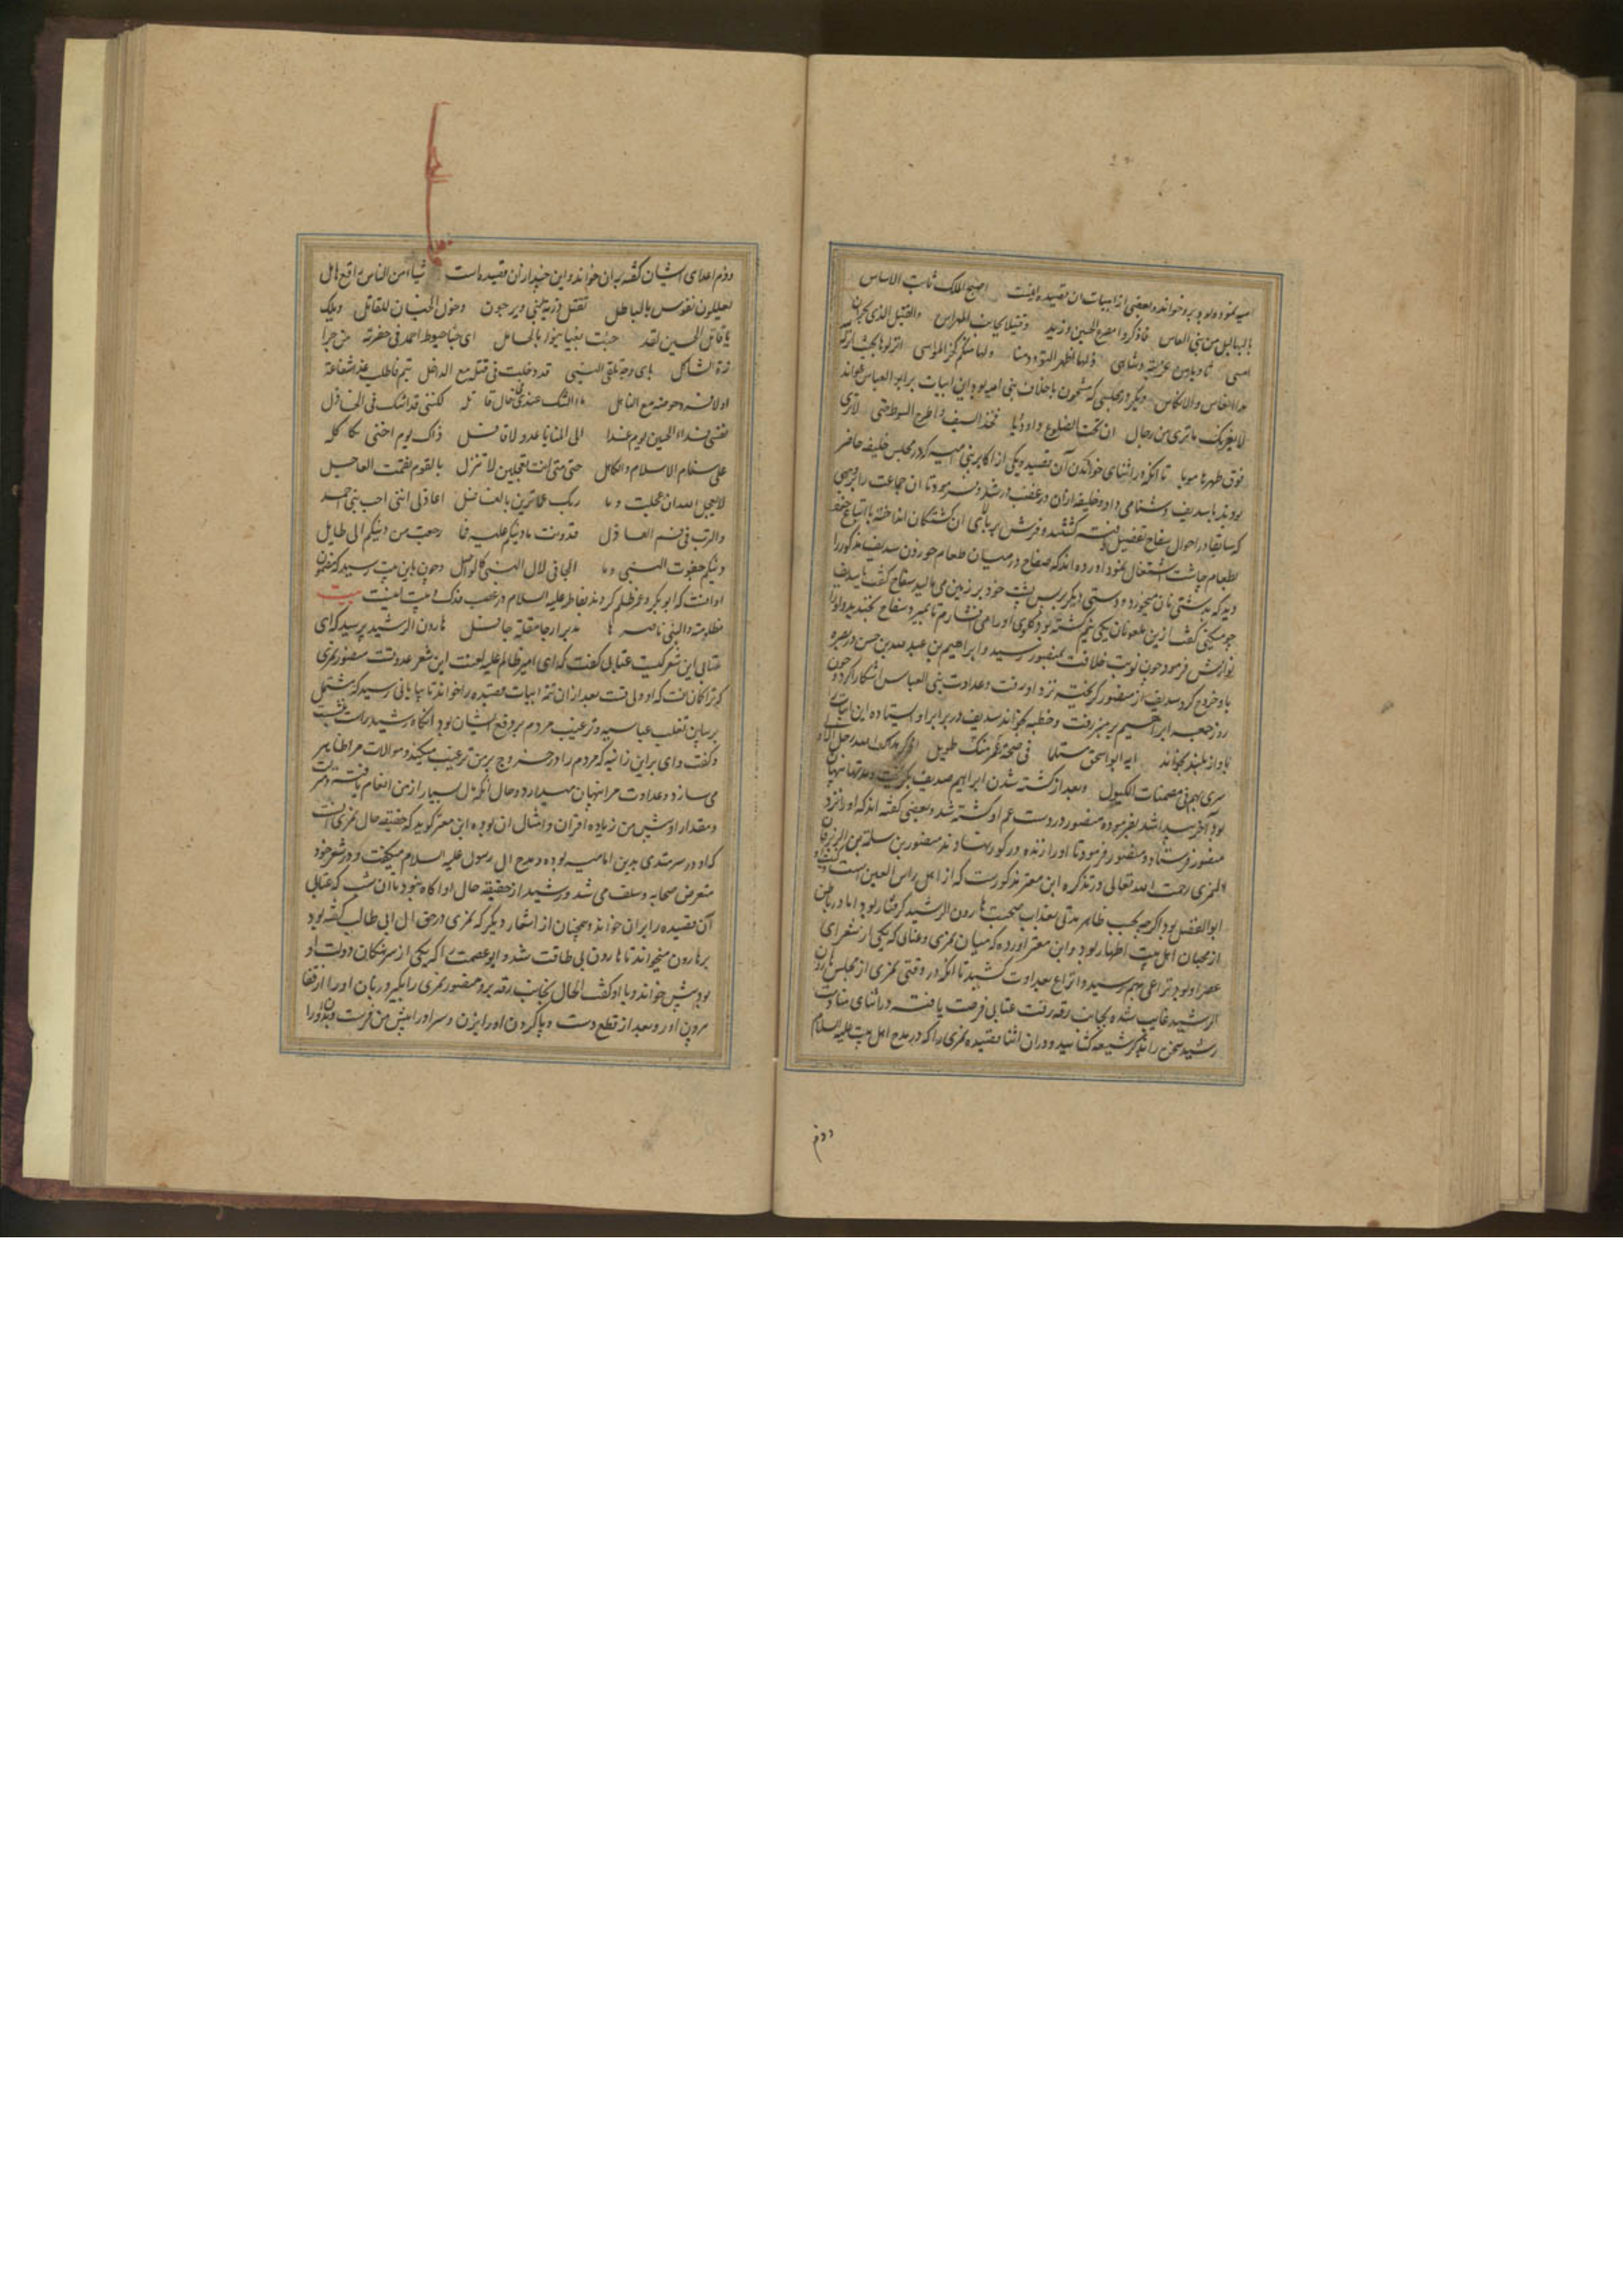 امیه نموده بود برو خواند و بعضی از ابیات ان قصیده اینست اصبح الملک ثابت الاساس
بالبهالیل من بنی العباس فاذکروا مصرع الحسین و زید و قتیلا بجانب المهراس والقتیل الذی بحران
امسی ثاویا بین غربة
جدا التعاس والاتکاس دیگر در مجلسی که مشحون باجلاف بنی امیه بود این ابیات برابر ابو العباس خواند
لا یغرنک ما تری من رجال ان تحت الضلوع داء دویا فخذ السیف و اطرح السوط حتی لا تری
فوق ظهرها امویا تا انکه در اثنای خواندن آن قصیده یکی از اکابر بنی امیه که در مجلس خلیفه حاضر
بودند با سدیف دشنامی داد و خلیفه ازان در غضب شد و فرمود تا ان جماعت را بوجهی
که سابقا در احوال سفاح تفصیل یافته کشتند و فرش بر بالای آن کشتگان انداخته با اتباع خود
بطعام چاشت اشتغال نمود اورده اند که سفاح در میان طعام خوردن سدیف مذکور را
دید که بدستی نان میخورد و دستی دیگر بر پس پشت خود بر زمین می مالید سفاح گفت یا سدیف
چه میکنی گفت ازین ملعونان یکی نیم کشته بود گلوی او را می فشارم تا بمیرد سفاح بخندید و او را
نوازش فرمود چون نوبت خلافت بمنصور رسید و ابراهیم بن عبد الله بن حسن در بصره
باو خروج کرد سدیف از منصور گریخته نزد او رفت و عداوت بنی العباس اشکارا کرد و چون
روز جمعه ابراهیم بر منبر رفت و خطبه بخواند سدیف در برابر او ایستاده این ابیات
باواز بلند بخواند ایه ابو اسحق فی صحة و عمر منک طویل اذکر
سری بهم فی مصمتات الکبول و بعد از کشته شدن ابراهیم سدیف بگریخت و مدتها پنهان
بود آخر پیدا شد بفرموده منصور در دست عم او کشته شد و بعضی گفته اند که او را نزد
منصور فرستاد و منصور فرمود تا او را زنده در گور نهادند منصور بن سلمة بن الزبرقان
النمری رحمت الله تعالی در تذکره ابن معتز مذکورست که از اهل راس العین است
ابو الفضل بود اگرچه بحسب ظاهر مدتی بعذاب صحبت هارون الرشید گرفتار بود اما در باطن
از محبان اهل بیت اطهار بود و ابن معتز اورده که میان نمری و عتابی که یکی از شعرای
عصر او بود نزاعی بهم رسید و انزاع بعداوت کشید تا انکه در وقتی نمری از مجلس هارون
الرشید غایب شده بجانب رقه رفت عتابی فرصت یافته در اثنای منادمت
رشید سخن را بذکر شیعه کشانید و دران اثنا قصیده نمری را که در مدح اهل بیت علیه السلام
و ذم
و ذم اعدای ایشان گفته بران خواند و این چند ازان قصیده است شاء من الناس راتع هامل
یعللون نفوس بالباطل تقتل ذریة النبی و یرجون دخول الجنان للقاتل ویلک
یا قاتل الحسین لقد جئت بعبا ینوء بالحامل ای حباء حبوط احمد فی حفرته من حرا
رة الثاکل بای وجه تلقی النبی قد دخلت فی قتله مع الداخل شفاعة
اولا فرد حوضه مع الناهل ما الشک عندی فی حال قاتله لکننی قد اشک فی الخاذل
نفسی فداء الحسین یوم غدا الی المنایا غدو لا قافل ذاک یوم اخنی بکا کله
علی سنام الاسلام والکاهل حتی متی انت تعجبین لا تنزل بالقوم نقمت العاجل
لا یعجل الله ان عجلت و ما ربک عما ترین بالغافل اعاذلی اننی احب بنی احمد
والترب فی فم العاذل قد دنت ما دینکم علیه فما رجعت من دینکم الی طایل
دینکم جفوت النبی و ما الجافی لال النبی کالواصل و چون باین بیت رسید که مضمون
او انست که ابوبکر و عمر ظلم کردند بفاطمه علیه السلام در غصب فدک و بیت اینست بیت
مظلومة والنبی ناصرها تدیر ارجا مقلة حافل هارون الرشید پرسید که ای
عتابی این شعر کیست عتابی گفت که ای امیر ظالم علیه لعنت این شعر عدوتست منصور نمری
که ترا گمان است که او ولی تست بعد ازان تتمه ابیات قصیده را خواند تا بپایانی رسید که مشتمل
بر سابق تغلب عباسیه و ترغیب مردم بر دفع ایشان بود آنگاه رشید راست نشست
و گفت وای براین زانیه که مردم را در خروج بر من ترغیب میکند و موالات مرا ظاهر
می سازد و عداوت مرا پنهان میدارد و حال آنکه مال بسیار از من انعام یافته و قربت
و مقدار او پیش من زیاده اقران و امثال ان بوده ابن معتز گوید که حقیقه حال نمری انست
که او در سر متدی بدین امامیه بوده و مدح ال رسول علیه السلام میگفت و در شعر خود
متعرض صحابه و سلف می شد و رشید از حقیقه حال او اگاه نبود تا ان شب که عتابی
آن قصیده را بران خواند و همچنان از اشعار دیگر که نمری در حق ال ابی طالب گفته بود
بر هارون میخواند تا هارون بی طاقت شد و ابو عصمت را که یکی از سرهنگان دولت او
بود پیش خواند و با او گفت الحال بجانب رقه برو منصور نمری را بگیر و زبان او را از قفا
بیرون اور و بعد از قطع دست و پا گردن او را بزن و سر او را پیش من فرست و بدن او را